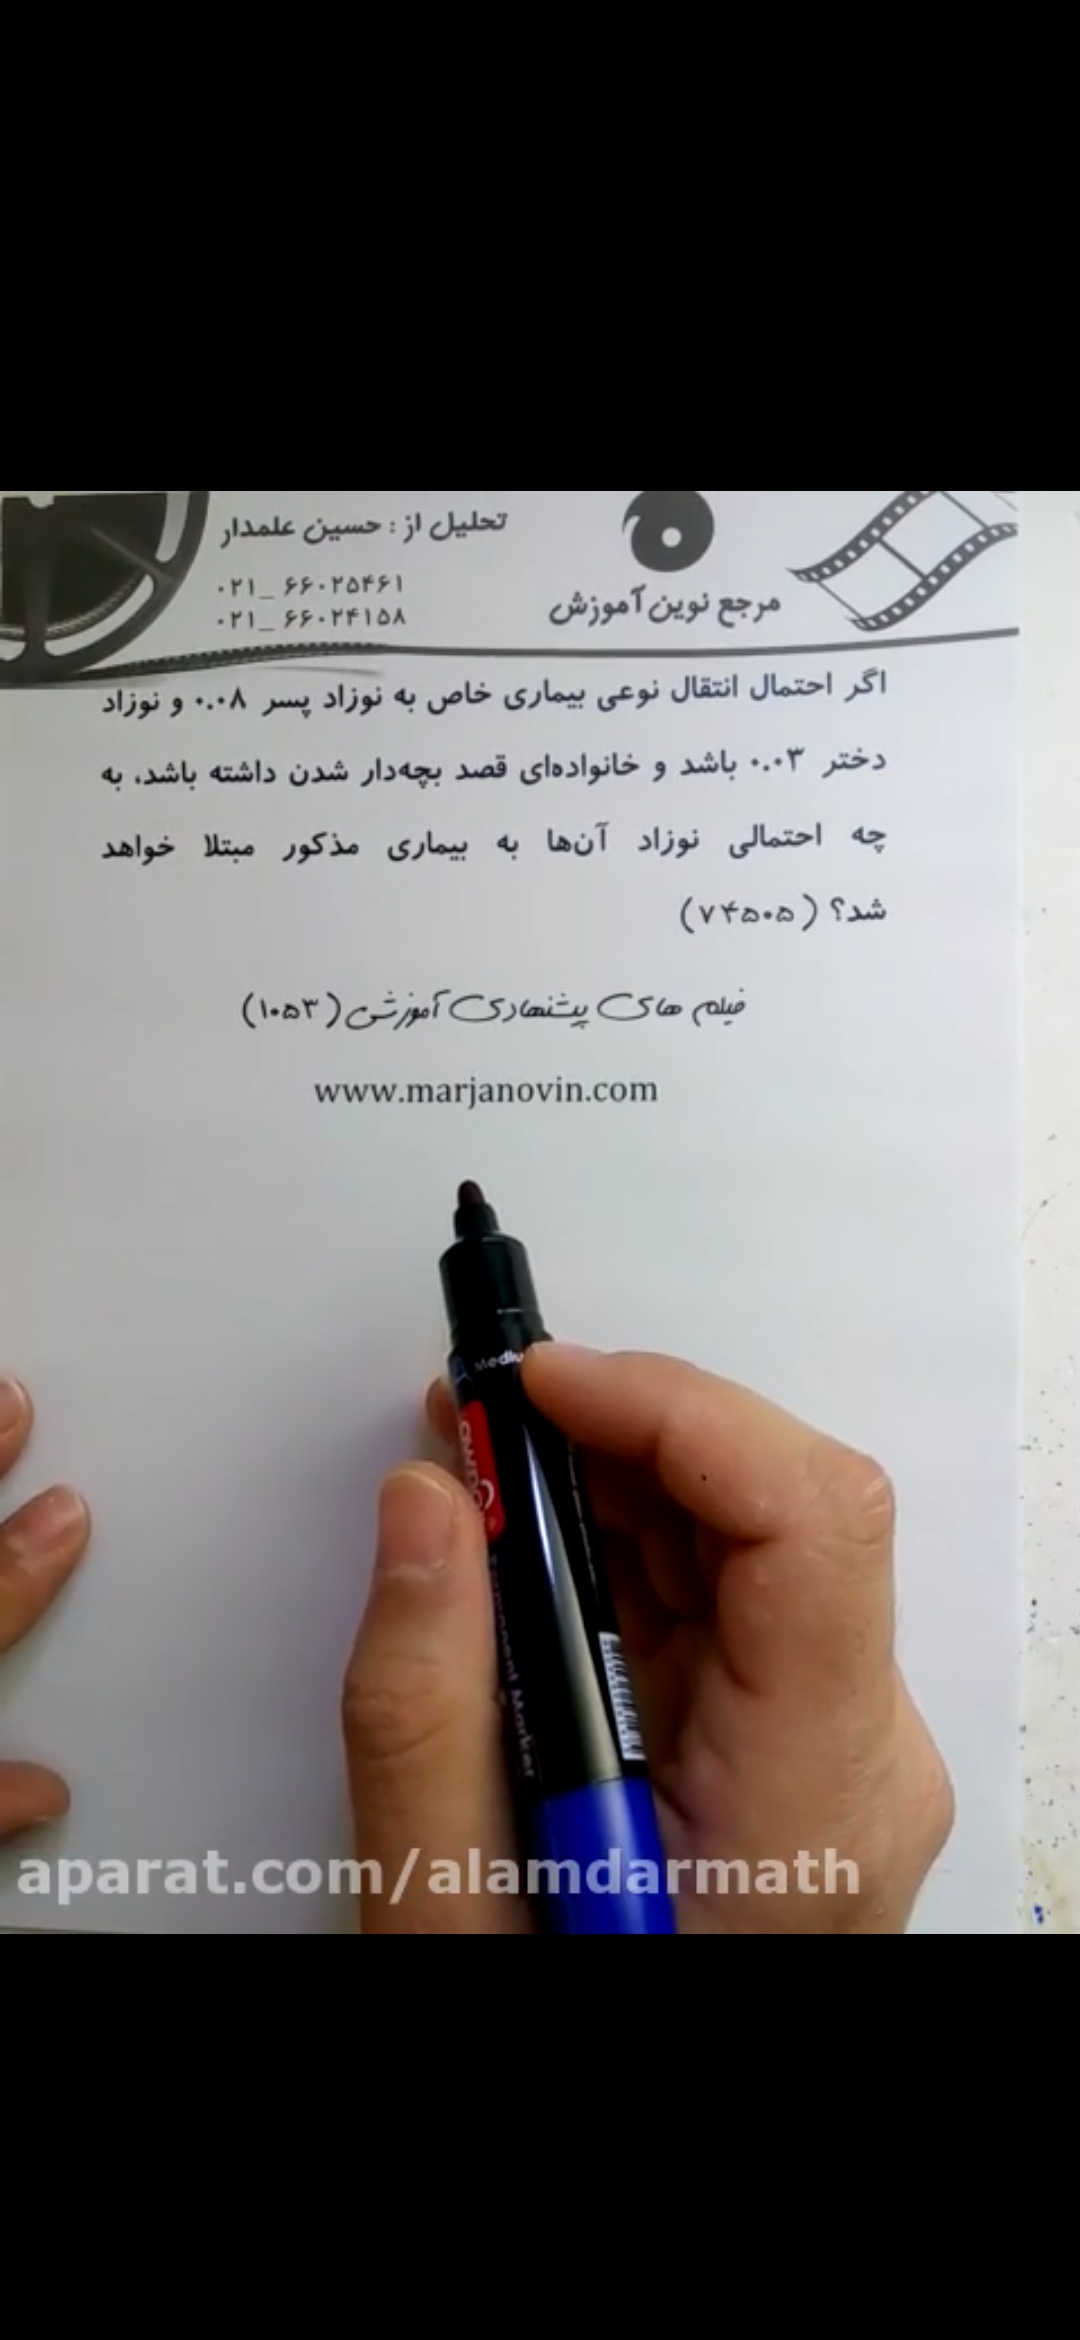 تحلیل از : حسین علمدار
۰۲۱_ ۶۶۰۲۵۴۶۱
۰۲۱_ ۶۶۰۲۴۱۵۸
مرجع نوین آموزش
اگر احتمال انتقال نوعی بیماری خاص به نوزاد پسر ۰.۰۸ و نوزاد
دختر ۰.۰۳ باشد و خانواده‌ای قصد بچه‌دار شدن داشته باشد، به
چه احتمالی نوزاد آن‌ها به بیماری مذکور مبتلا خواهد
شد؟ (۷۴۵۰۵)
فیلم های پیشنهادی آموزشی (۱۰۵۳)
www.marjanovin.com
Permanent Marker
aparat.com/alamdarmath